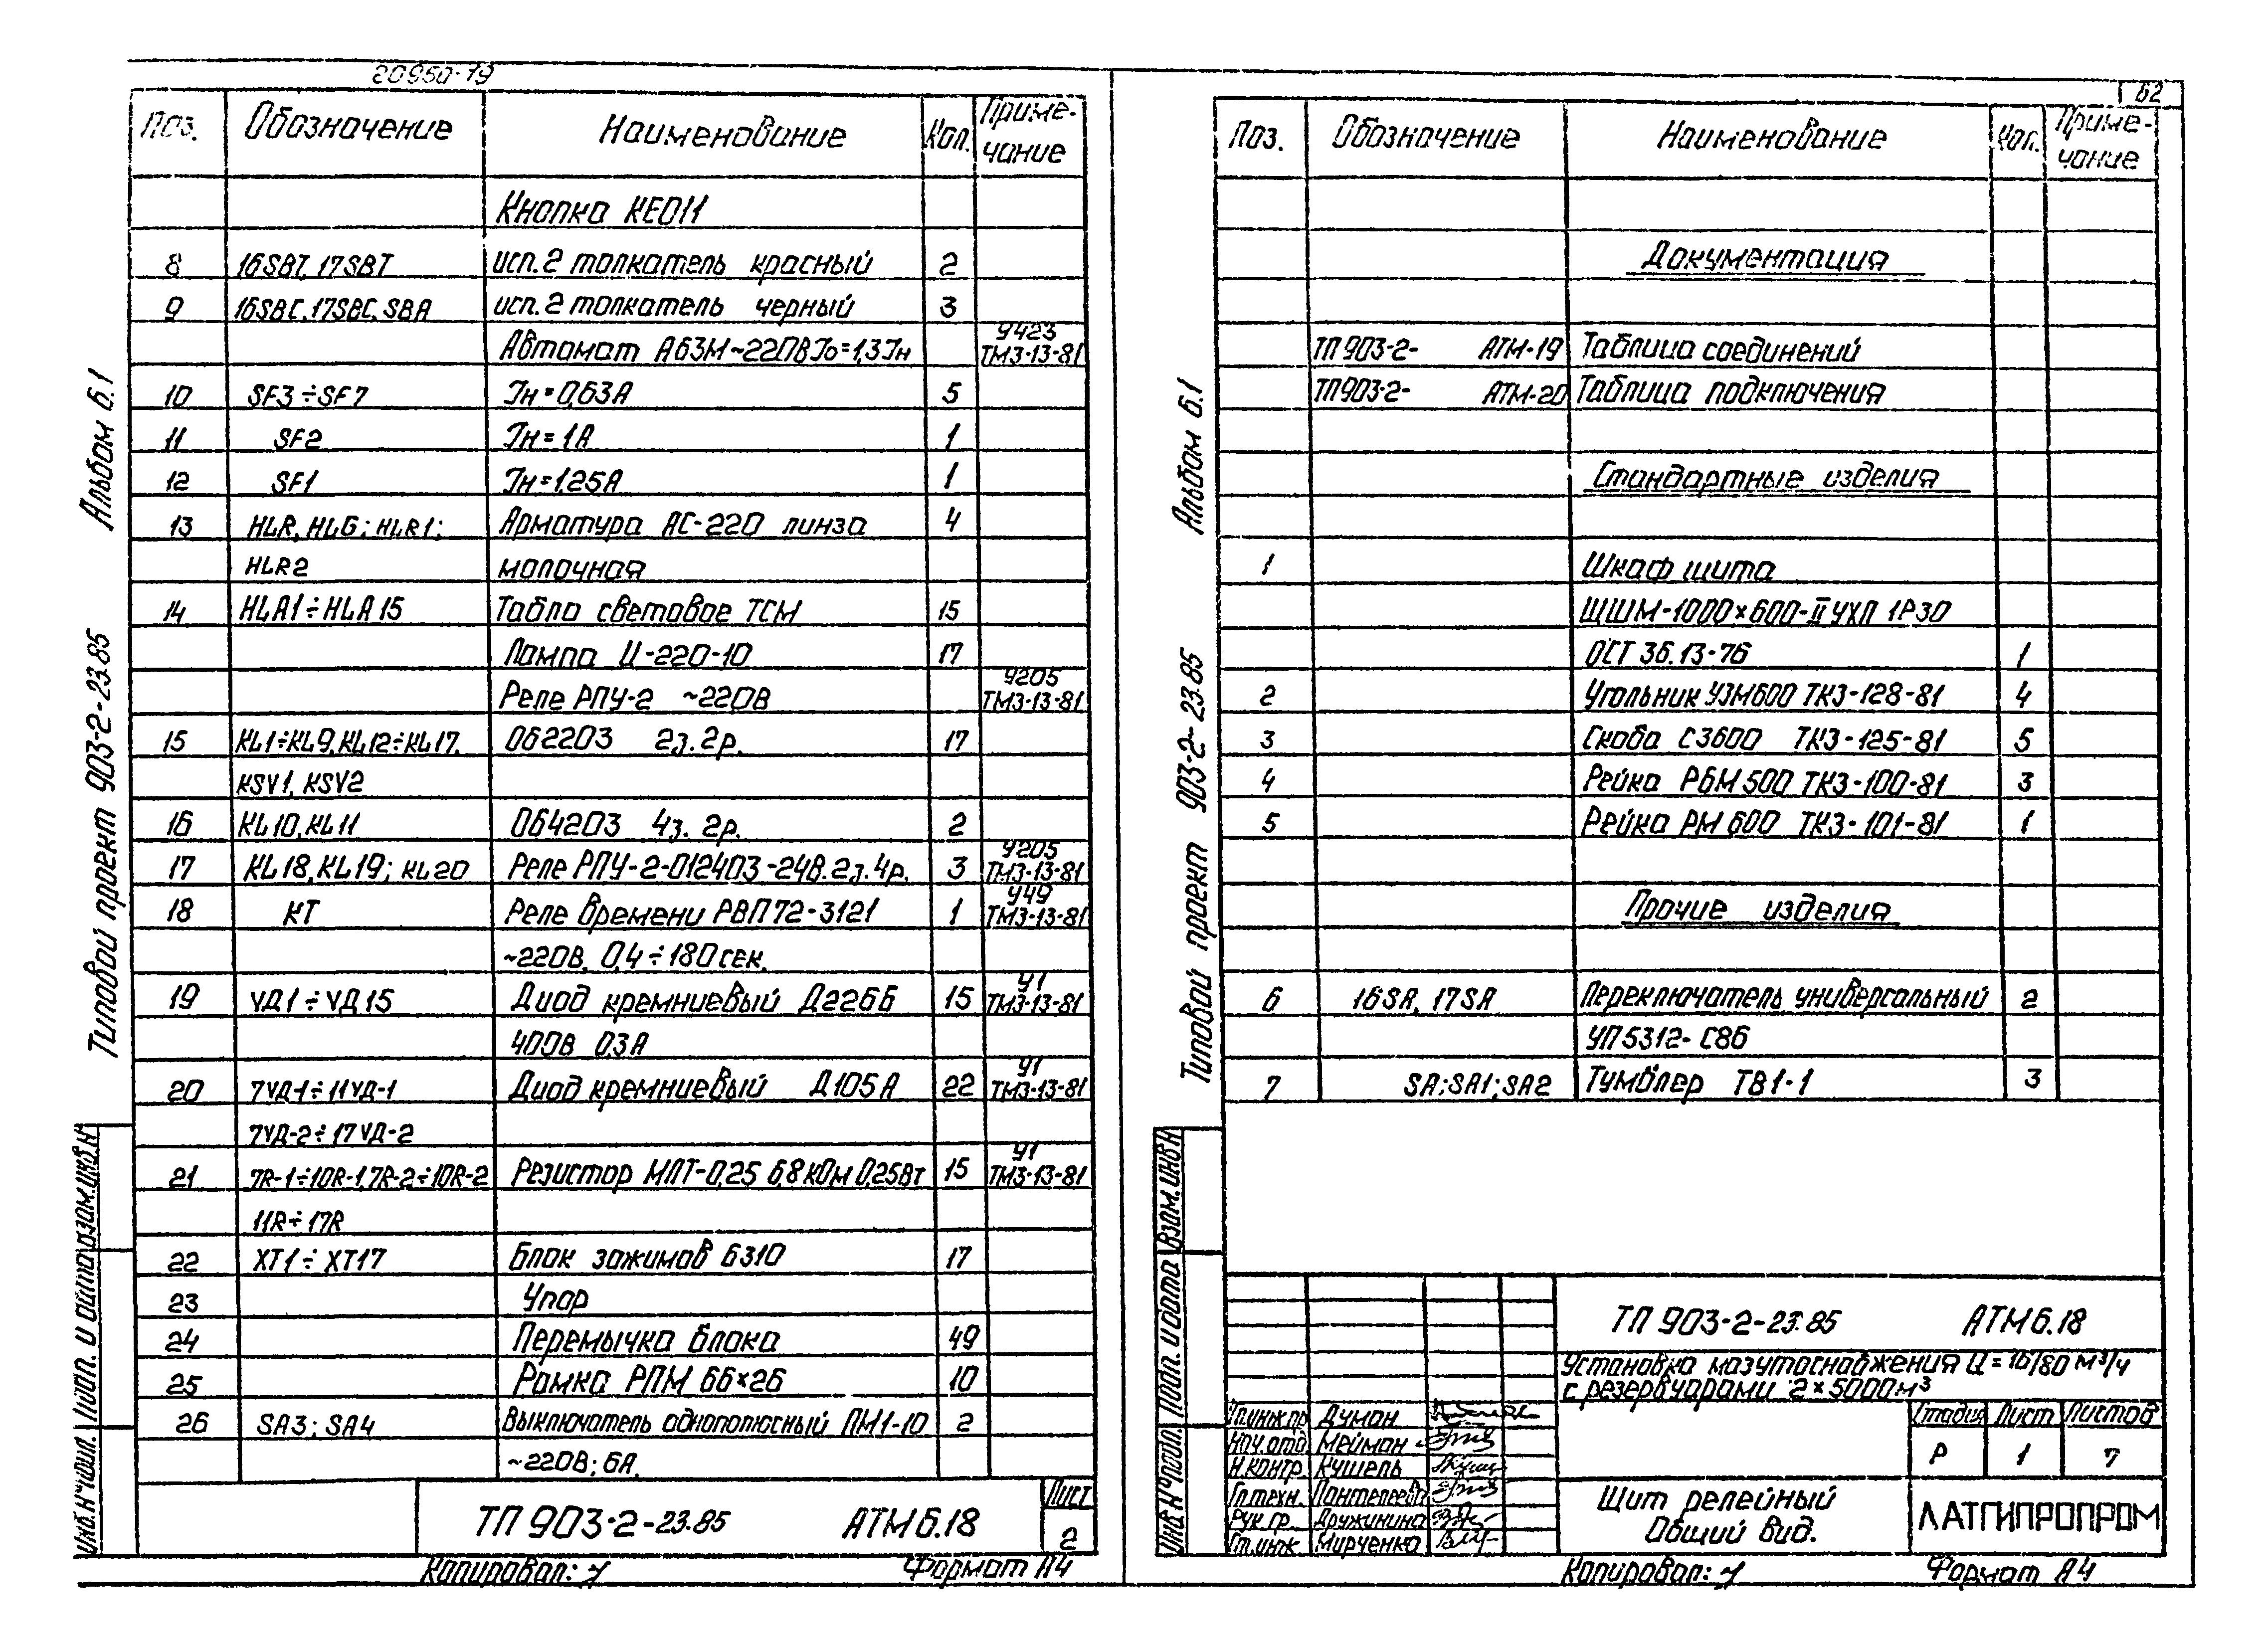 20950-19
Поз. Обозначение Наименование Кол. Приме-
чание
Кнопка КЕ011
8 16SBT, 17SBT исп.2 толкатель красный 2
9 16SBC, 17SBC, SBA исп.2 толкатель черный 3
Автомат А63М~220В Jо=1,3Jн У423
ТМ3-13-81
10 SF3÷SF7 Jн=0,63А 5
11 SF2 Jн=1А 1
12 SF1 Jн=1,25А 1
13 HLR, HLG; HLR1; Арматура АС-220 линза 4
HLR2 молочная
14 HLA1÷HLA15 Табло световое ТСМ 15
Лампа Ц-220-10 17
Реле РПУ-2 ~220В У205
ТМ3-13-81
15 KL1÷KL9, KL12÷KL17. 062203 2з.2р. 17
KSV1, KSV2
16 KL10, KL11 064203 4з. 2р. 2
17 KL18, KL19; KL20 Реле РПУ-2-012403-24В.2з.4р. 3 У205
ТМ3-13-81
18 КТ Реле времени РВП72-3121 1 У49
ТМ3-13-81
~220В. 0,4÷180сек.
19 VД1÷VД15 Диод кремниевый Д226Б 15 У1
ТМ3-13-81
400В 0,3А
20 7VД-1÷11VД-1 Диод кремниевый Д105А 22 У1
ТМ3-13-81
7VД-2÷17VД-2
21 7R-1÷10R-1, 7R-2÷10R-2 Резистор МЛТ-0,25 6,8кОм 0,25Вт 15 У1
ТМ3-13-81
11R÷17R
22 ХТ1÷ХТ17 Блок зажимов БЗ10 17
23 Упор
24 Перемычка блока 49
25 Рамка РПМ 66×26 10
26 SA3; SA4 Выключатель однополюсный ПМ1-10 2
~220В; 6А.
ТП 903-2-23.85 АТМ6.18 Лист
2
Копировал: Формат А4
Альбом 6.1
Типовой проект 903-2-23.85
Взам.инв.№
Подп. и дата
Инв.№ подл.
62
Поз. Обозначение Наименование Кол. Приме-
чание
Документация
ТП 903-2- АТМ-19 Таблица соединений
ТП903-2- АТМ-20 Таблица подключения
Стандартные изделия
1 Шкаф щита
ЩШМ-1000×600-II УХЛ 1Р30
ОСТ 36.13-76 1
2 Угольник УЗМ600 ТК3-128-81 4
3 Скоба С3600 ТК3-125-81 5
4 Рейка Р6М500 ТК3-100-81 3
5 Рейка РМ600 ТК3-101-81 1
Прочие изделия
6 16SA, 17SA Переключатель универсальный 2
УП5312-С86
7 SA; SA1; SA2 Тумблер ТВ1-1 3
Альбом 6.1
Типовой проект 903-2-23.85
Взам.инв.№
Подп. и дата
Инв.№ подл.
ТП 903-2-23.85 АТМ6.18
Установка мазутоснабжения Ц=16/80 м³/ч
с резервуарами 2×5000м³
Гл.инж.пр Думан
Нач.отд. Мейман
Н.контр. Кушель
Гл.техн. Пантелеев
Рук.гр. Дружинина
Гл.инж. Мирченко
Стадия Лист Листов
Р 1 7
Щит релейный
Общий вид.
ЛАТГИПРОПРОМ
Копировал: Формат А4